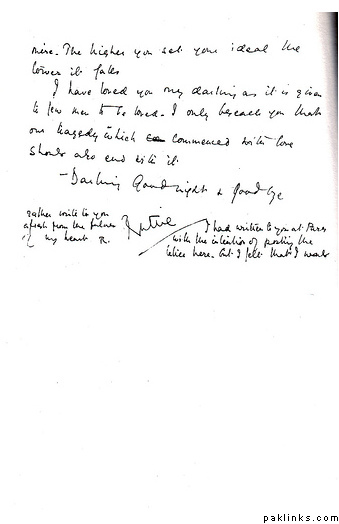 mine. The higher you set your ideal the
lower it falls
I have loved you my darling as it is given
to few men to be loved. I only beseech you that
our tragedy which commenced with love
should also end with it.
- Darling Goodnight & Goodbye
Ruttie
I had written to you at Paris
with the intention of posting the
letter here. But I felt that I would
rather write to you
afresh from the fulness
of my heart R.
paklinks.com